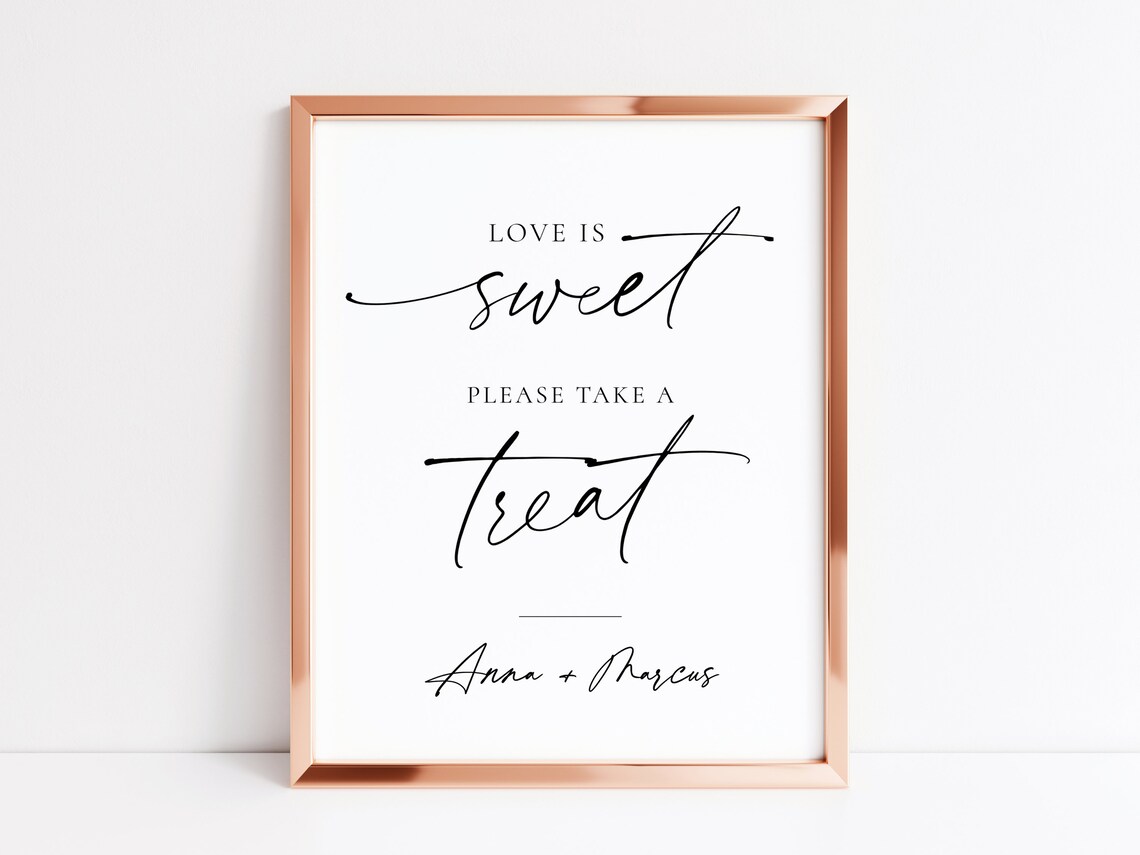 LOVE IS
sweet
PLEASE TAKE A
treat
Anna + Marcus